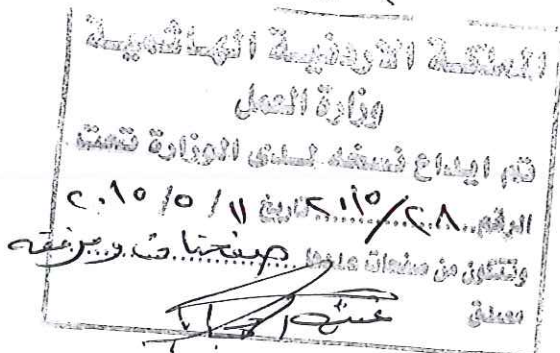 المملكة الاردنية الهاشمية
وزارة العمل
تم ايداع نسخة لدى الوزارة تحت
الرقم ٢٠١٥/٢٨ تاريخ ١١ / ٥ / ٢٠١٥
وتتكون من صفحات عددها صفحتان ومرفقه